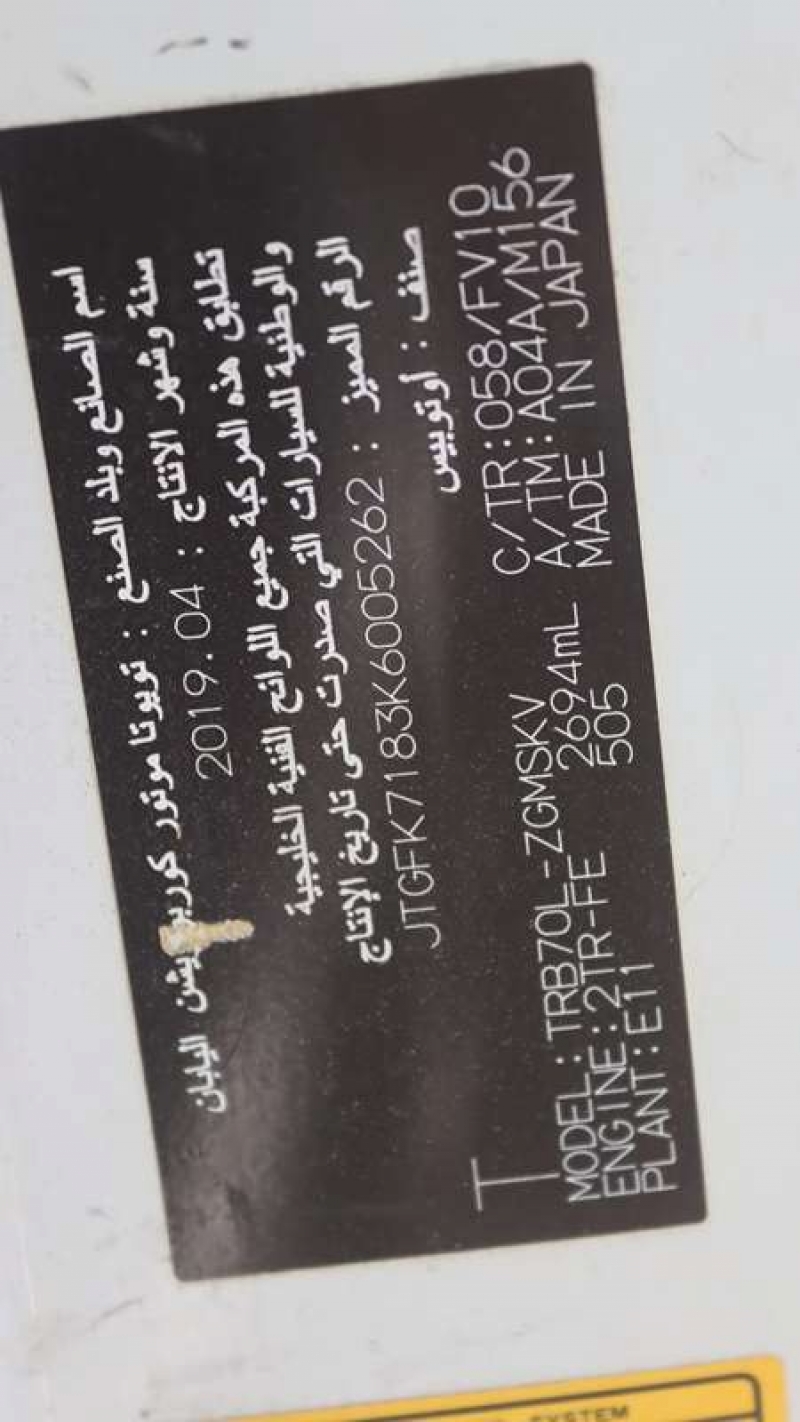 اسم الصانع وبلد الصنع : تويوتا موتور كوربوريشن اليابان
سنة وشهر الانتاج : 2019.04
تطابق هذه المركبة جميع اللوائح الفنية الخليجية
والوطنية للسيارات التي صدرت حتى تاريخ الإنتاج
الرقم المميز : JTGFK7183K6005262
صنف : أوتوبيس
T
C/TR:058/FV10
MODEL:TRB70L-ZGMSKV A/TM:A04A/M156
ENGINE:2TR-FE 2694mL MADE IN JAPAN
PLANT:E11 505
SYSTEM